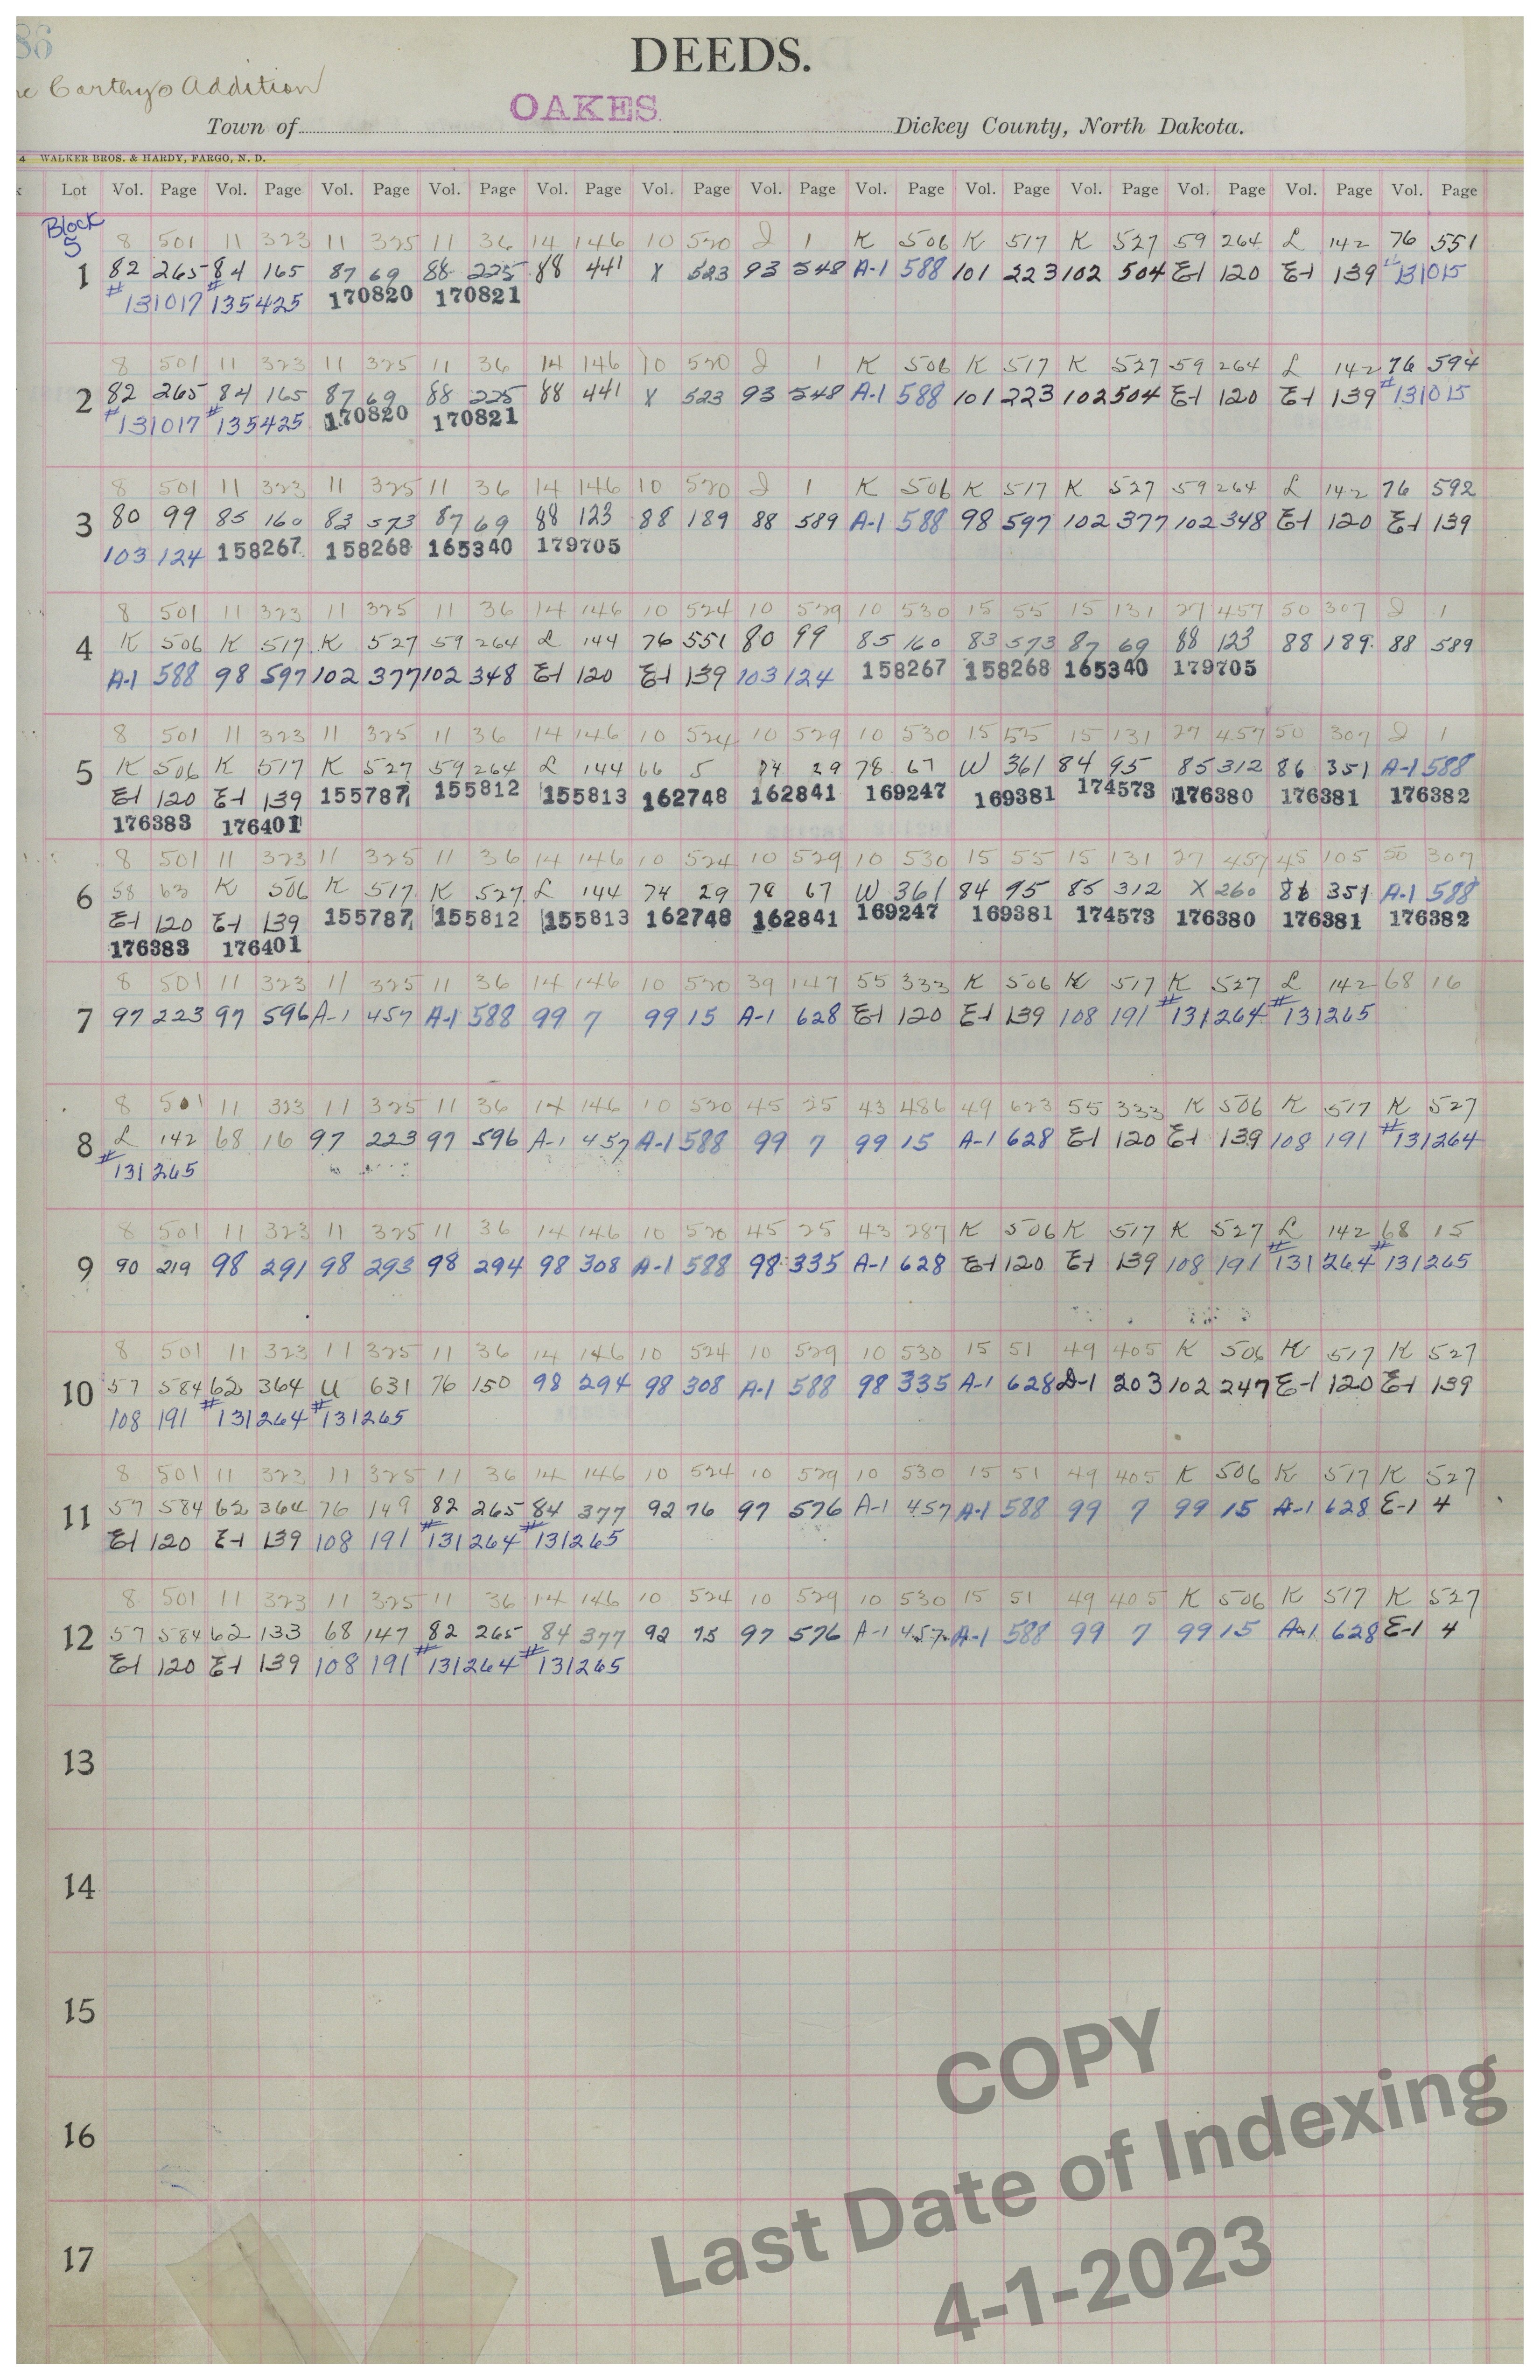 86
Carthy's Addition
DEEDS.
OAKES
Town of Dickey County, North Dakota.
4 WALKER BROS. & HARDY, FARGO, N. D.
Lot Vol. Page Vol. Page Vol. Page Vol. Page Vol. Page Vol. Page Vol. Page Vol. Page Vol. Page Vol. Page Vol. Page Vol. Page Vol. Page
Block
5
8 501 11 323 11 325 11 36 14 146 10 520 J 1 K 506 K 517 K 527 59 264 L 142 76 551
1 82 265 84 165 87 69 88 225 88 441 X 523 93 548 A-1 588 101 223 102 504 E-1 120 E-1 139 #131015
#131017 #135425 170820 170821
8 501 11 323 11 325 11 36 14 146 10 520 J 1 K 506 K 517 K 527 59 264 L 142 76 594
2 82 265 84 165 87 69 88 225 88 441 X 523 93 548 A-1 588 101 223 102 504 E-1 120 E-1 139 #131015
#131017 #135425 170820 170821
8 501 11 323 11 325 11 36 14 146 10 520 J 1 K 506 K 517 K 527 59 264 L 142 76 592
3 80 99 85 160 83 573 87 69 88 123 88 189 88 589 A-1 588 98 597 102 377 102 348 E-1 120 E-1 139
103 124 158267 158268 165340 179705
8 501 11 323 11 325 11 36 14 146 10 524 10 529 10 530 15 55 15 131 27 457 50 307 J 1
4 K 506 K 517 K 527 59 264 L 144 76 551 80 99 85 160 83 573 87 69 88 123 88 189 88 589
A-1 588 98 597 102 377 102 348 E-1 120 E-1 139 103 124 158267 158268 165340 179705
8 501 11 323 11 325 11 36 14 146 10 524 10 529 10 530 15 55 15 131 27 457 50 307 J 1
5 K 506 K 517 K 527 59 264 L 144 66 5 74 29 78 67 W 361 84 95 85 312 86 351 A-1 588
E-1 120 E-1 139 155787 155812 155813 162748 162841 169247 169381 174573 176380 176381 176382
176383 176401
8 501 11 323 11 325 11 36 14 146 10 524 10 529 10 530 15 55 15 131 27 457 45 105 50 307
6 58 63 K 506 K 517 K 527 L 144 74 29 78 67 W 361 84 95 85 312 X 260 86 351 A-1 588
E-1 120 E-1 139 155787 155812 155813 162748 162841 169247 169381 174573 176380 176381 176382
176383 176401
8 501 11 323 11 325 11 36 14 146 10 520 39 147 55 333 K 506 K 517 K 527 L 142 68 16
7 97 223 97 596 A-1 457 A-1 588 99 7 99 15 A-1 628 E-1 120 E-1 139 108 191 #131264 #131265
8 501 11 323 11 325 11 36 14 146 10 520 45 25 43 486 49 623 55 333 K 506 K 517 K 527
8 L 142 68 16 97 223 97 596 A-1 457 A-1 588 99 7 99 15 A-1 628 E-1 120 E-1 139 108 191 #131264
#131265
8 501 11 323 11 325 11 36 14 146 10 520 45 25 43 287 K 506 K 517 K 527 L 142 68 15
9 90 219 98 291 98 293 98 294 98 308 A-1 588 98 335 A-1 628 E-1 120 E-1 139 108 191 #131264 #131265
8 501 11 323 11 325 11 36 14 146 10 524 10 529 10 530 15 51 49 405 K 506 K 517 K 527
10 57 584 62 364 U 631 76 150 98 294 98 308 A-1 588 98 335 A-1 628 D-1 203 102 247 E-1 120 E-1 139
108 191 #131264 #131265
8 501 11 323 11 325 11 36 14 146 10 524 10 529 10 530 15 51 49 405 K 506 K 517 K 527
11 57 584 62 364 76 149 82 265 84 377 92 76 97 576 A-1 457 A-1 588 99 7 99 15 A-1 628 E-1 4
E-1 120 E-1 139 108 191 #131264 #131265
8 501 11 323 11 325 11 36 14 146 10 524 10 529 10 530 15 51 49 405 K 506 K 517 K 527
12 57 584 62 133 68 147 82 265 84 377 92 75 97 576 A-1 457 A-1 588 99 7 99 15 A-1 628 E-1 4
E-1 120 E-1 139 108 191 #131264 #131265
13
14
15
16
17
COPY
Last Date of Indexing
4-1-2023